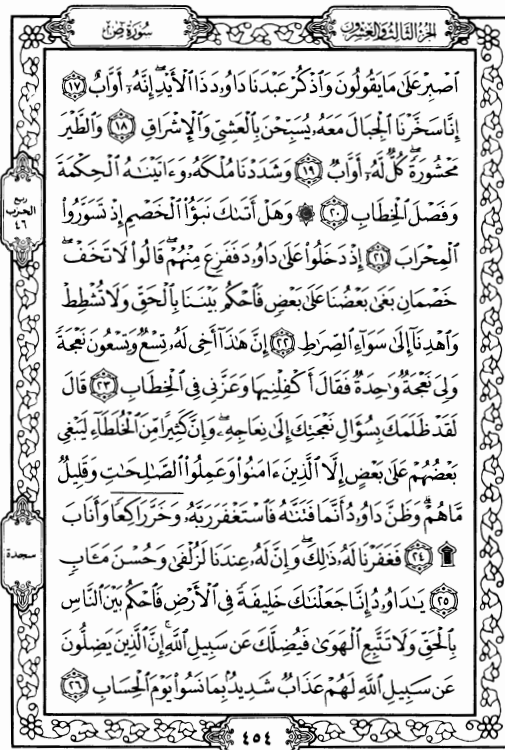 سُورَةُ صٓ
الجُزْءُ الثَّالِثُ وَالعِشْرُونَ
ٱصْبِرْ عَلَىٰ مَا يَقُولُونَ وَٱذْكُرْ عَبْدَنَا دَاوُۥدَ ذَا ٱلْأَيْدِ ۖ إِنَّهُۥٓ أَوَّابٌ ١٧
إِنَّا سَخَّرْنَا ٱلْجِبَالَ مَعَهُۥ يُسَبِّحْنَ بِٱلْعَشِىِّ وَٱلْإِشْرَاقِ ١٨ وَٱلطَّيْرَ
مَحْشُورَةً ۖ كُلٌّ لَّهُۥٓ أَوَّابٌ ١٩ وَشَدَدْنَا مُلْكَهُۥ وَءَاتَيْنَـٰهُ ٱلْحِكْمَةَ
وَفَصْلَ ٱلْخِطَابِ ٢٠ ۞ وَهَلْ أَتَىٰكَ نَبَؤُا۟ ٱلْخَصْمِ إِذْ تَسَوَّرُوا۟
ٱلْمِحْرَابَ ٢١ إِذْ دَخَلُوا۟ عَلَىٰ دَاوُۥدَ فَفَزِعَ مِنْهُمْ ۖ قَالُوا۟ لَا تَخَفْ ۖ
خَصْمَانِ بَغَىٰ بَعْضُنَا عَلَىٰ بَعْضٍ فَٱحْكُم بَيْنَنَا بِٱلْحَقِّ وَلَا تُشْطِطْ
وَٱهْدِنَآ إِلَىٰ سَوَآءِ ٱلصِّرَٰطِ ٢٢ إِنَّ هَـٰذَآ أَخِى لَهُۥ تِسْعٌ وَتِسْعُونَ نَعْجَةً
وَلِىَ نَعْجَةٌ وَٰحِدَةٌ فَقَالَ أَكْفِلْنِيهَا وَعَزَّنِى فِى ٱلْخِطَابِ ٢٣ قَالَ
لَقَدْ ظَلَمَكَ بِسُؤَالِ نَعْجَتِكَ إِلَىٰ نِعَاجِهِۦ ۖ وَإِنَّ كَثِيرًا مِّنَ ٱلْخُلَطَآءِ لَيَبْغِى
بَعْضُهُمْ عَلَىٰ بَعْضٍ إِلَّا ٱلَّذِينَ ءَامَنُوا۟ وَعَمِلُوا۟ ٱلصَّـٰلِحَـٰتِ وَقَلِيلٌ
مَّا هُمْ ۗ وَظَنَّ دَاوُۥدُ أَنَّمَا فَتَنَّـٰهُ فَٱسْتَغْفَرَ رَبَّهُۥ وَخَرَّ رَاكِعًا وَأَنَابَ
۩ ٢٤ فَغَفَرْنَا لَهُۥ ذَٰلِكَ ۖ وَإِنَّ لَهُۥ عِندَنَا لَزُلْفَىٰ وَحُسْنَ مَـَٔابٍ
٢٥ يَـٰدَاوُۥدُ إِنَّا جَعَلْنَـٰكَ خَلِيفَةً فِى ٱلْأَرْضِ فَٱحْكُم بَيْنَ ٱلنَّاسِ
بِٱلْحَقِّ وَلَا تَتَّبِعِ ٱلْهَوَىٰ فَيُضِلَّكَ عَن سَبِيلِ ٱللَّهِ ۚ إِنَّ ٱلَّذِينَ يَضِلُّونَ
عَن سَبِيلِ ٱللَّهِ لَهُمْ عَذَابٌ شَدِيدٌۢ بِمَا نَسُوا۟ يَوْمَ ٱلْحِسَابِ ٢٦
ربع
الحزب
٤٦
سجدة
٤٥٤